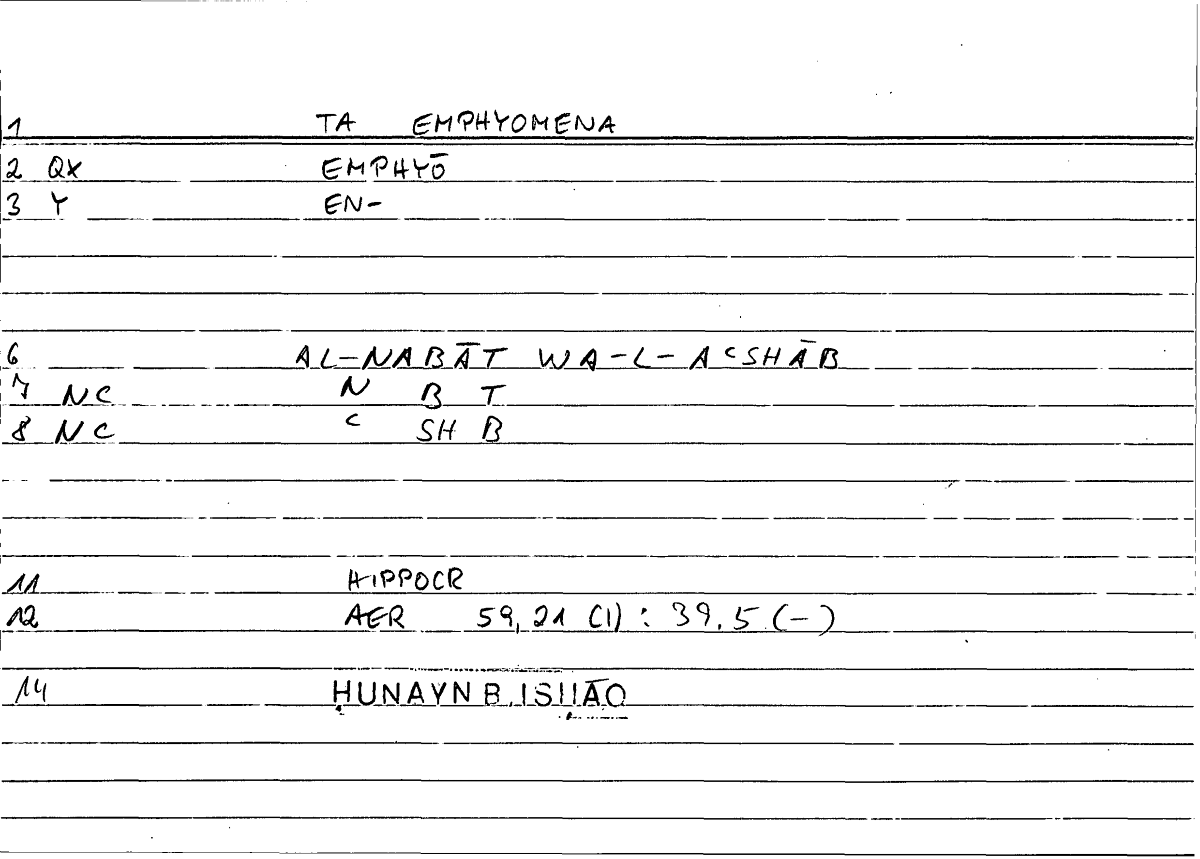 1 TA EMPHYOMENA
2 QX EMPHYŌ
3 Y EN-
6 AL-NABĀT WA-L-AʿSHĀB
7 NC N B T
8 NC ʿ SH B
11 HIPPOCR
12 AER 59,21 (1) : 39.5 (-)
14 ḤUNAYN B. ISḤĀQ